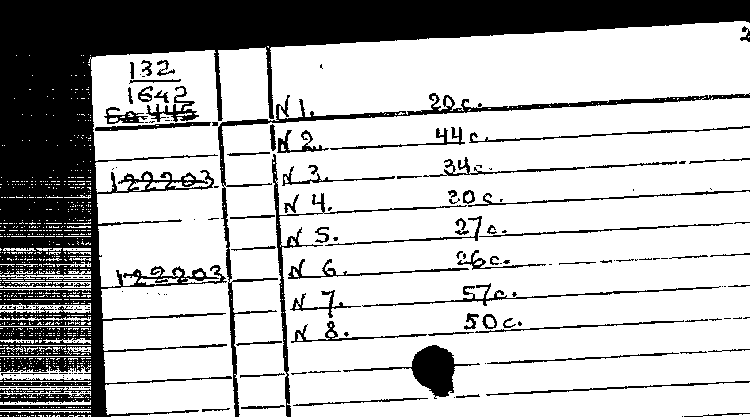 132
1642
N 1. 20 c.
N 2. 44 c.
122203 N 3. 34 c.
N 4. 20 c.
N 5. 27 c.
122203 N 6. 26 c.
N 7. 57 c.
N 8. 50 c.